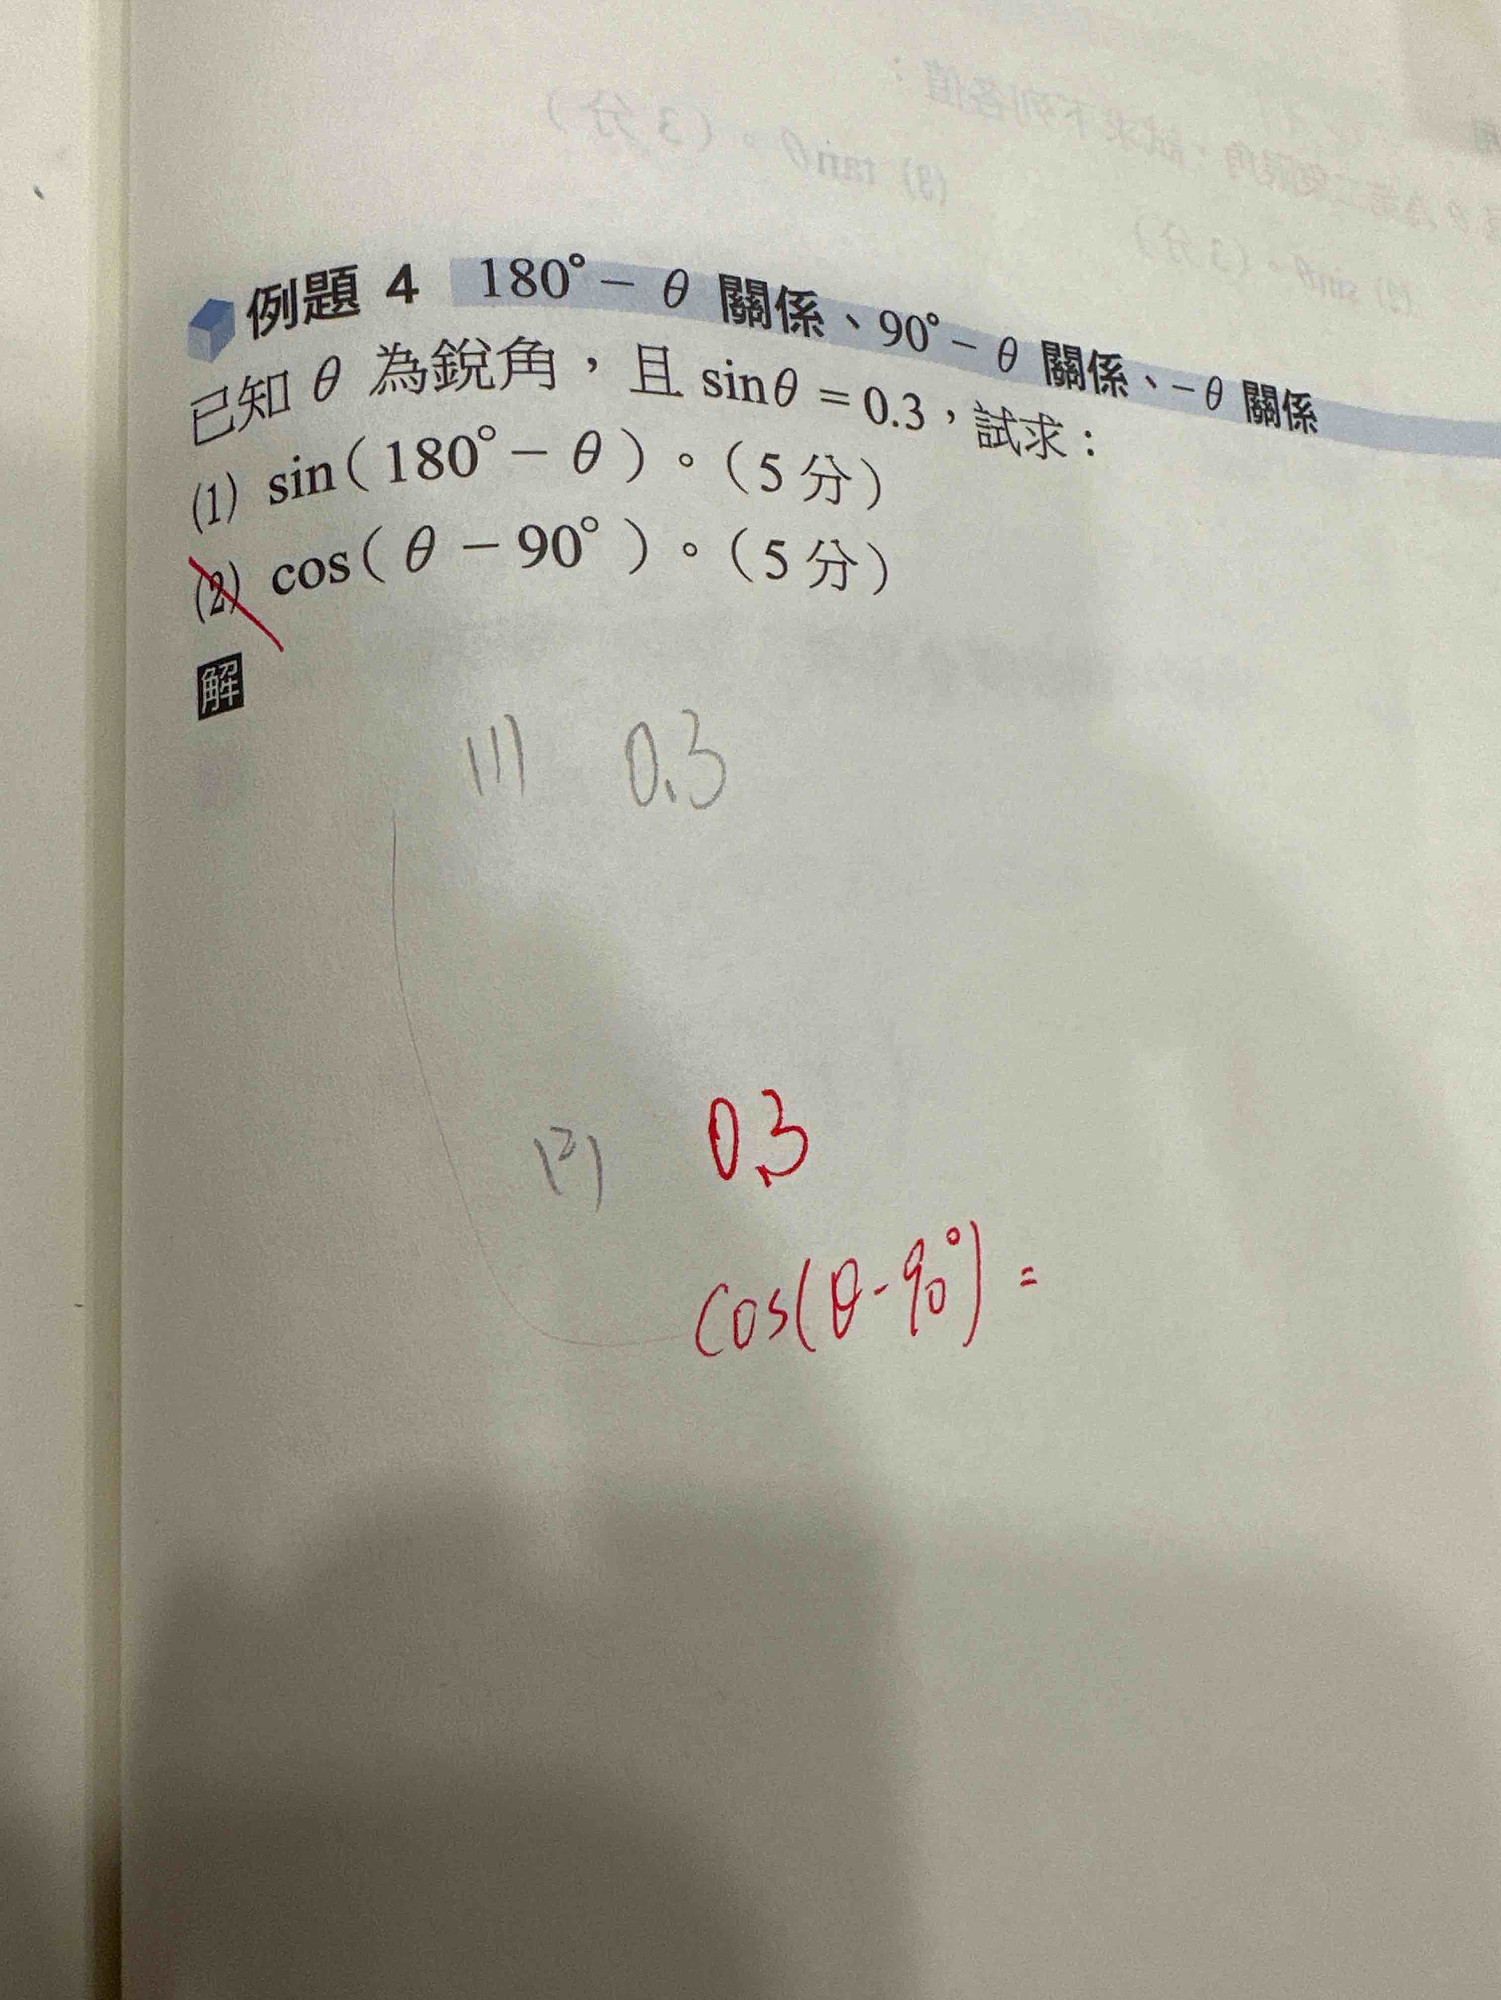 例題 4 180° − θ 關係、90° − θ 關係、− θ 關係
已知 θ 為銳角，且 sinθ = 0.3，試求：
(1) sin( 180° − θ )。( 5 分 )
(2) cos( θ − 90° )。( 5 分 )
解
(1) 0.3
(2) 0.3
cos(θ-90°) =